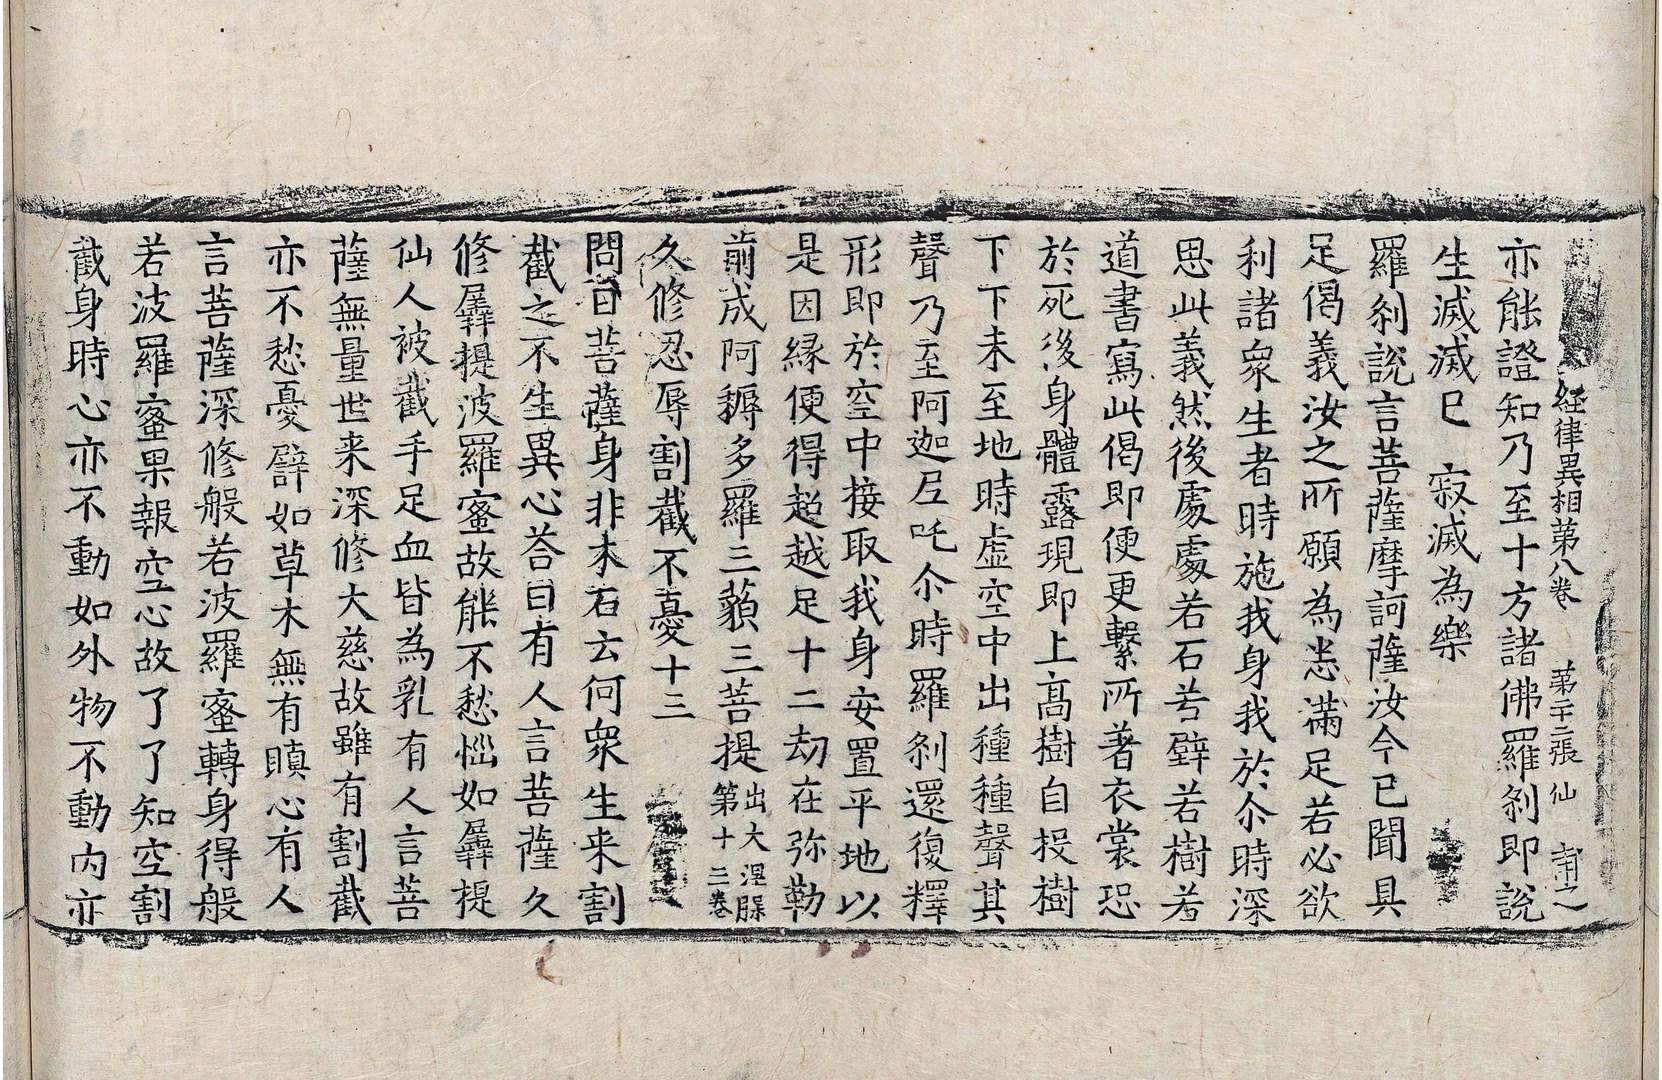 経律異相第八卷　第二十二張　仙
亦能證知乃至十方諸佛羅刹即說
生滅滅已　寂滅為樂
羅刹說言菩薩摩訶薩汝今已聞具
足偈義汝之所願為悉滿足若必欲
利諸衆生者時施我身我於尒時深
思此義然後處處若石若壁若樹若
道書寫此偈即便更繫所著衣裳恐
於死後身體露現即上高樹自投樹
下下未至地時虛空中出種種聲其
聲乃至阿迦尼吒尒時羅刹還復釋
形即於空中接取我身安置平地以
是因縁便得超越足十二劫在弥勒
前成阿耨多羅三藐三菩提出大涅槃第十三卷
久修忍辱割截不憂十三
問曰菩薩身非木石云何衆生来割
截之不生異心荅曰有人言菩薩久
修羼提波羅蜜故能不愁惱如羼提
仙人被截手足血皆為乳有人言菩
薩無量世来深修大慈故雖有割截
亦不愁憂譬如草木無有瞋心有人
言菩薩深修般若波羅蜜轉身得般
若波羅蜜果報空心故了了知空割
截身時心亦不動如外物不動內亦